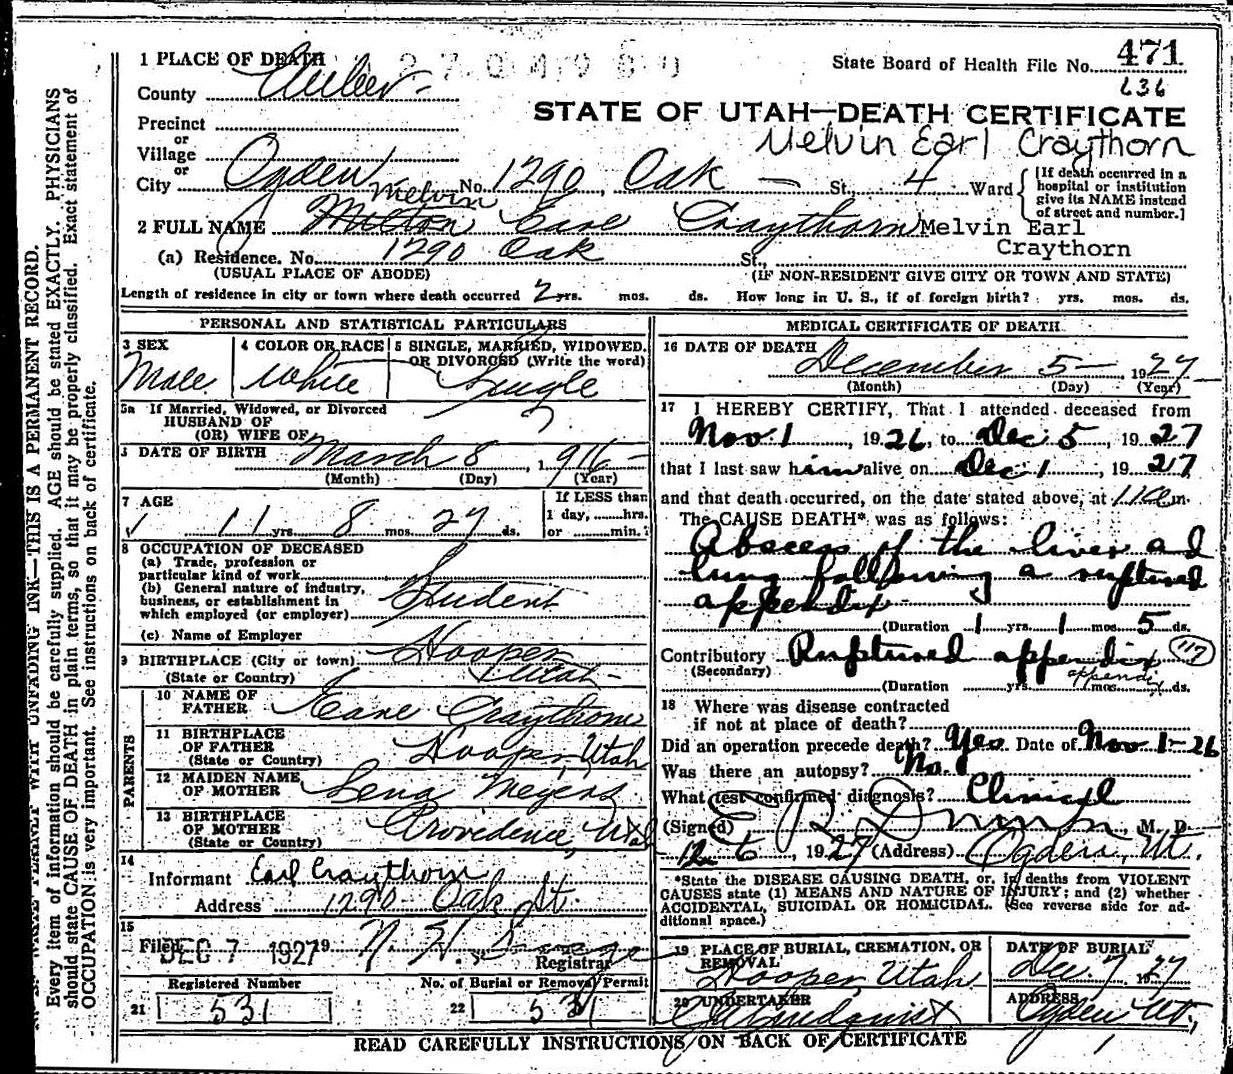 1 PLACE OF DEATH
State Board of Health File No. 471
636
County Weber
STATE OF UTAH—DEATH CERTIFICATE
Precinct
or
Melvin Earl Craythorn
Village
or
City Ogden No. 1290, Oak St., 4 Ward
[If death occurred in a
hospital or institution
give its NAME instead
of street and number.]
Melvin
2 FULL NAME Milton Earl Craythorn Melvin Earl
Craythorn
(a) Residence. No. 1290 Oak St.,
(USUAL PLACE OF ABODE) (IF NON-RESIDENT GIVE CITY OR TOWN AND STATE)
Length of residence in city or town where death occurred 2 yrs. mos. ds. How long in U. S., if of foreign birth? yrs. mos. ds.
PERSONAL AND STATISTICAL PARTICULARS
3 SEX
Male
4 COLOR OR RACE
White
5 SINGLE, MARRIED, WIDOWED,
OR DIVORCED (Write the word)
Single
5a If Married, Widowed, or Divorced
HUSBAND OF
(OR) WIFE OF
DATE OF BIRTH March 8, 1916
(Month) (Day) (Year)
7 AGE
11 yrs. 8 mos. 27 ds.
If LESS than
1 day, hrs.
or min.
8 OCCUPATION OF DECEASED
(a) Trade, profession or
particular kind of work
(b) General nature of industry,
business, or establishment in
which employed (or employer)
Student
(c) Name of Employer
9 BIRTHPLACE (City or town) Hooper
(State or Country) Utah
PARENTS
10 NAME OF
FATHER Earl Craythorn
11 BIRTHPLACE
OF FATHER Hooper, Utah
(State or Country)
12 MAIDEN NAME
OF MOTHER Lena Meyers
13 BIRTHPLACE
OF MOTHER Providence, Utah
(State or Country)
14
Informant Earl Craythorn
Address 1290 Oak St.
15
Filed DEC 7 1927 19 N. H. Savage
Registrar
Registered Number
21 531
No. of Burial or Removal Permit
22 531
MEDICAL CERTIFICATE OF DEATH
16 DATE OF DEATH
December 5 1927
(Month) (Day) (Year)
17 I HEREBY CERTIFY, That I attended deceased from
Nov. 1, 1926, to Dec. 5, 1927
that I last saw him alive on Dec. 1, 1927
and that death occurred, on the date stated above, at m.
The CAUSE DEATH* was as follows:
Abscess of the liver and
lung following a ruptured
appendix
(Duration 1 yrs. 1 mos. 5 ds.
Contributory Ruptured appendix 117
(Secondary) appendix
(Duration yrs. mos. ds.
18 Where was disease contracted
if not at place of death?
Did an operation precede death? Yes. Date of Nov. 1-26
Was there an autopsy? No.
What test confirmed diagnosis? Clinical
(Signed) M. D.
12 6, 1927 (Address) Ogden, Ut.
*State the DISEASE CAUSING DEATH, or, in deaths from VIOLENT
CAUSES state (1) MEANS AND NATURE OF INJURY; and (2) whether
ACCIDENTAL, SUICIDAL OR HOMICIDAL. (See reverse side for ad-
ditional space.)
19 PLACE OF BURIAL, CREMATION, OR
REMOVAL
Hooper, Utah
DATE OF BURIAL
Dec. 7 1927
20 UNDERTAKER
ADDRESS
Ogden Ut,
READ CAREFULLY INSTRUCTIONS ON BACK OF CERTIFICATE
UNFADING INK—THIS IS A PERMANENT RECORD.
Every item of information should be carefully supplied. AGE should be stated EXACTLY. PHYSICIANS
should state CAUSE OF DEATH in plain terms, so that it may be properly classified. Exact statement of
OCCUPATION is very important. See instructions on back of certificate.